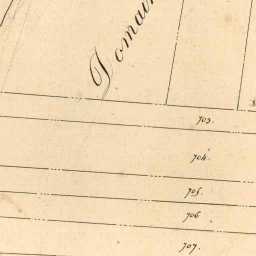 Domain
703.
704.
705.
706.
707.